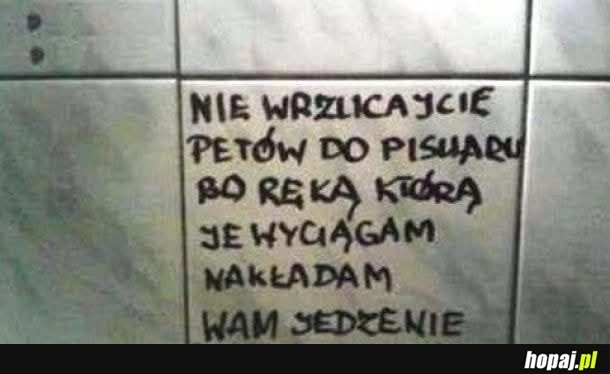 NIE WRZUCAJCIE
PETÓW DO PISUARU
BO RĘKĄ KTÓRĄ
JE WYCIĄGAM
NAKŁADAM
WAM JEDZENIE
hopaj.pl